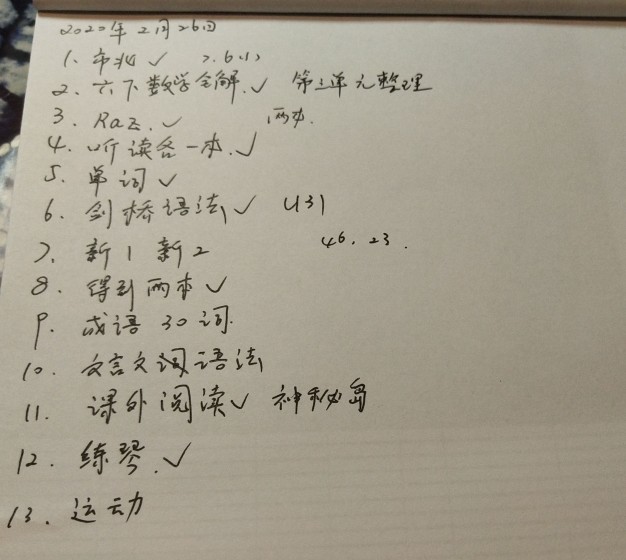 2020年2月26日
1. 市北 ✓ 7.6(1)
2. 六下数学全解.✓ 第三单元整理
3. Raz.✓ 两本.
4. 听读各一本.✓
5. 单词 ✓
6. 剑桥语法 ✓ U31
7. 新1 新2 46. 23.
8. 得到两本 ✓
9. 成语 30词.
10. 文言文词语法
11. 课外阅读 ✓ 神秘岛
12. 练琴.✓
13. 运动